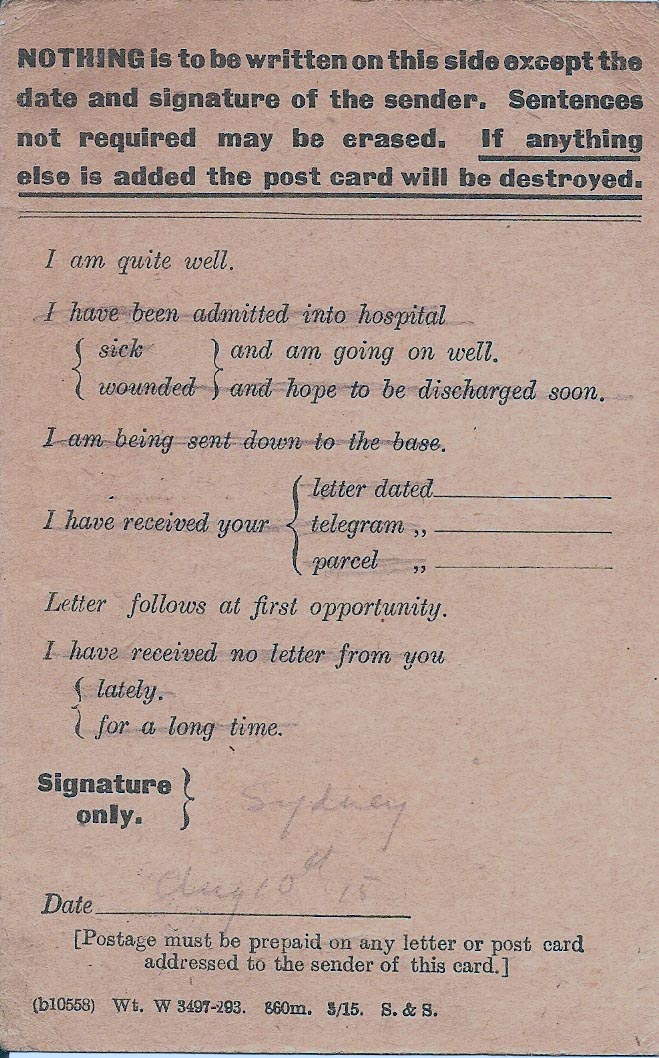 NOTHING is to be written on this side except the
date and signature of the sender. Sentences
not required may be erased. If anything
else is added the post card will be destroyed.
I am quite well.
I have been admitted into hospital
{ sick } and am going on well.
{ wounded } and hope to be discharged soon.
I am being sent down to the base.
letter dated
I have received your { telegram „
parcel „
Letter follows at first opportunity.
I have received no letter from you
{ lately.
{ for a long time.
Signature
only. } Sydney
Date Aug 10th 15
[Postage must be prepaid on any letter or post card
addressed to the sender of this card.]
(b10558) Wt. W 3497-293. 860m. 3/15. S. & S.